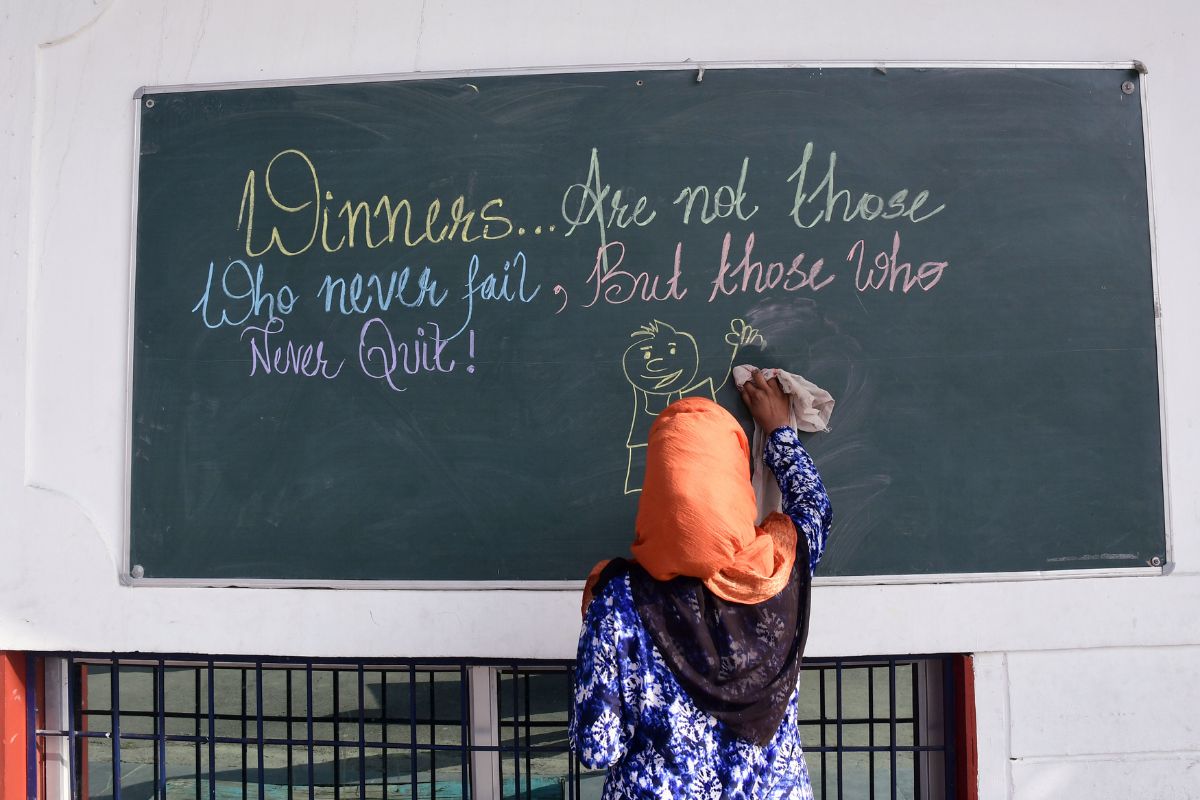 Winners... Are not those
Who never fail, But those Who
Never Quit!